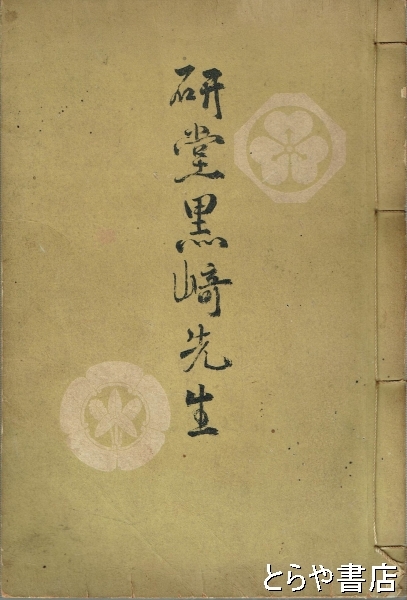 研堂黒﨑先生
とらや書店